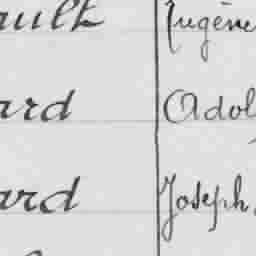 ault Eugène
ard Adol
ard Joseph,